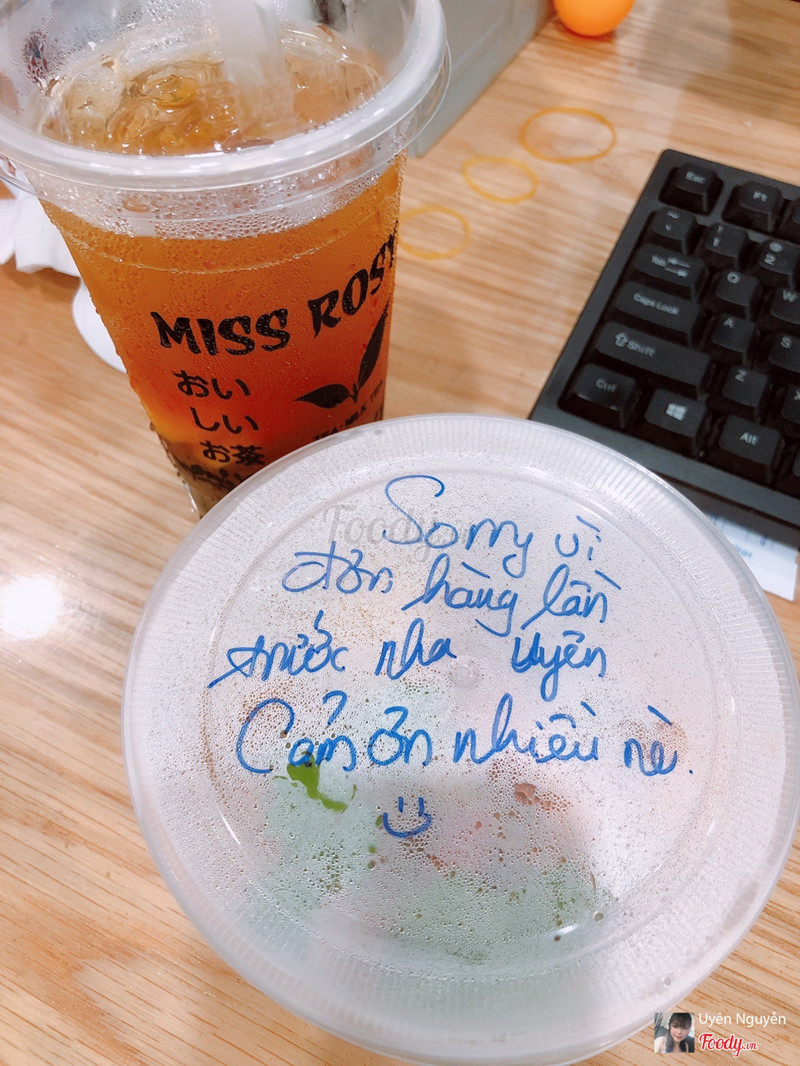 MISS ROSY
おい
しい
お茶
Sorry vì
đơn hàng lần
trước nha Uyên
Cảm ơn nhiều nè.
Foody
Esc
F1
~
!
1
@
2
Tab
Q
W
Caps Lock
A
S
Shift
Z
Ctrl
Alt
Uyên Nguyễn
Foody.vn